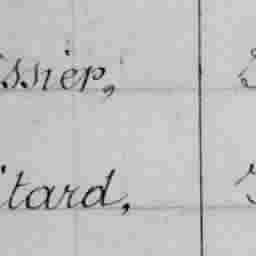 ssier,
itard,